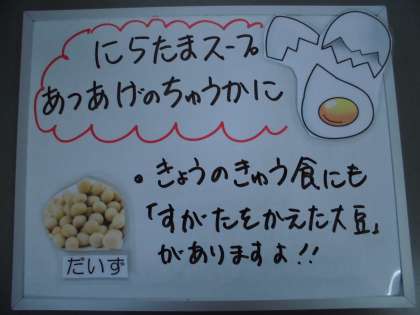 にらたまスープ
あつあげのちゅうかに
・きょうのきゅう食にも
「すがたをかえた大豆」
がありますよ!!
だいず